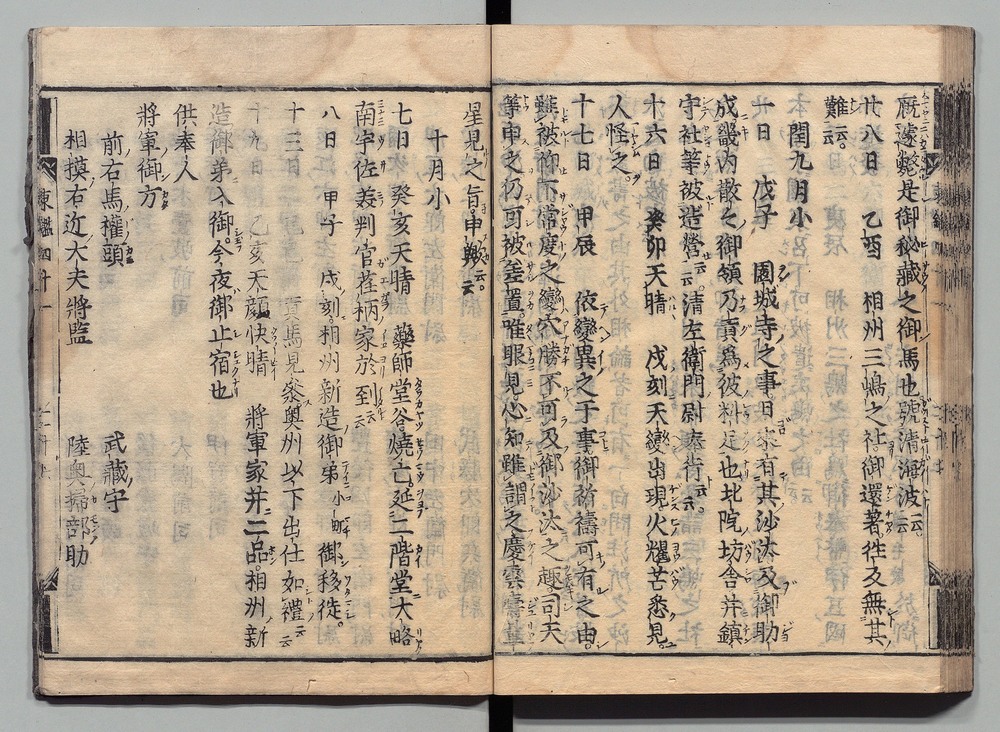 厩遽斃是御秘藏之御馬也號清海波云云
廿八日 乙酉 相州三嶋之社御還著往反無其
難云云
閏九月小
一日 戊子 園城寺之事日來有其沙汰及御助
成畿内散之御領乃貢爲彼料足也北院坊舎并鎮
守社等被造營云云清左衛門尉奉行云云
十六日 癸卯天晴 戌刻天變出現火耀芒悉見
人怪之
十七日 甲辰 依變異之于事御祈禱可有之由
雖被仰下常度之變穴勝不可及御沙汰之趣司天
等申之仍可被差置唯眼見心知雖謂之慶雲
星見之旨申云云
十月小
七日 癸亥天晴 藥師堂谷燒亡延二階堂大略
南宇佐義判官荏柄家於到至云云
八日 甲子 戌刻相州新造御弟小町御移徙
十三日 貢馬見參奥州以下出仕如禮云云
十九日 乙亥天顔快晴 將軍家并二品相州新
造御弟入御今夜御止宿也
供奉人
將軍御方
前右馬權頭 武藏守
相摸右近大夫將監 陸奥掃部助